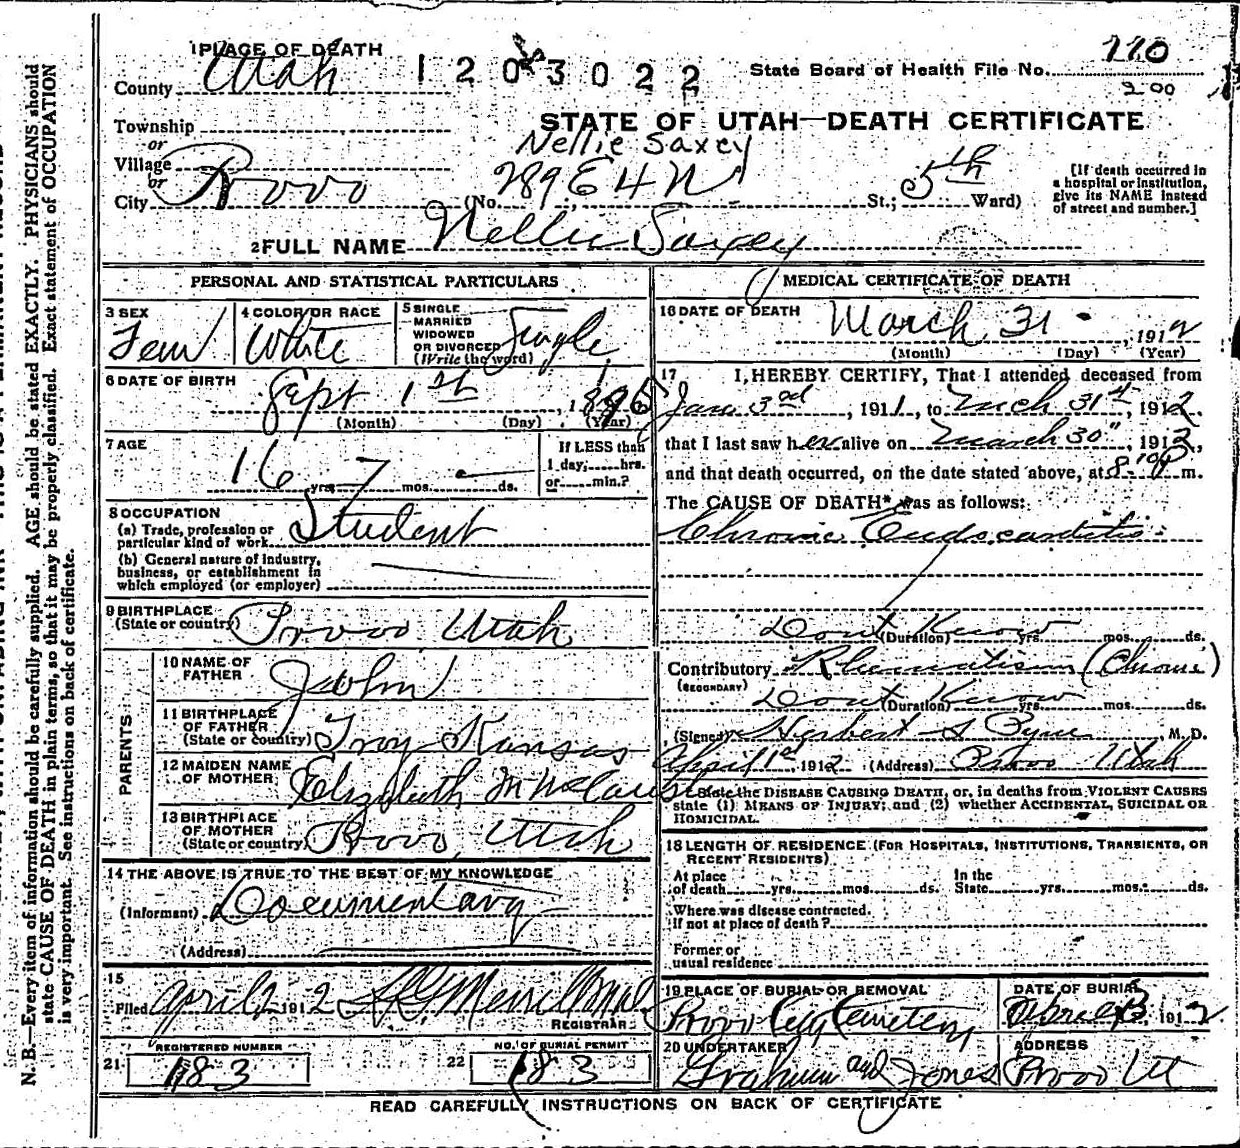 1 PLACE OF DEATH
County Utah
1203022
State Board of Health File No. 110
300
Township
or
Village
or
City Provo
STATE OF UTAH—DEATH CERTIFICATE
Nellie Saxey
(No. 289 E 4 N St.; 5th Ward)
[If death occurred in
a hospital or institution,
give its NAME instead
of street and number.]
2 FULL NAME Nellie Saxey
PERSONAL AND STATISTICAL PARTICULARS
3 SEX
Fem
4 COLOR OR RACE
White
5 SINGLE
MARRIED
WIDOWED
OR DIVORCED
(Write the word)
Single
6 DATE OF BIRTH
Sept 1st, 1895
(Month) (Day) (Year)
7 AGE
16 yrs. 7 mos. — ds.
If LESS than
1 day,......hrs.
or......min.?
8 OCCUPATION
(a) Trade, profession or
particular kind of work Student
(b) General nature of industry,
business, or establishment in
which employed (or employer)
9 BIRTHPLACE
(State or country) Provo Utah
PARENTS
10 NAME OF
FATHER John
11 BIRTHPLACE
OF FATHER
(State or country) Troy Kansas
12 MAIDEN NAME
OF MOTHER Elizabeth
13 BIRTHPLACE
OF MOTHER
(State or country) Provo, Utah
14 THE ABOVE IS TRUE TO THE BEST OF MY KNOWLEDGE
(Informant) Documentary
(Address)
15
Filed April 2 1912
REGISTRAR
REGISTERED NUMBER
21 183
NO. OF BURIAL PERMIT
22 183
MEDICAL CERTIFICATE OF DEATH
16 DATE OF DEATH
March 31, 1912
(Month) (Day) (Year)
17 I HEREBY CERTIFY, That I attended deceased from
Jan 3rd, 1911, to Mch 31st, 1912.
that I last saw her alive on March 30", 1912,
and that death occurred, on the date stated above, at 8-10 P m.
The CAUSE OF DEATH* was as follows:
Chronic Endocarditis
Dont Know
(Duration) yrs. mos. ds.
Contributory Rheumatism (Chronic)
(SECONDARY)
Dont Know
(Duration) yrs. mos. ds.
(Signed) Herbert S Pyne, M. D.
April 1st, 1912 (Address) Provo Utah
*State the DISEASE CAUSING DEATH, or, in deaths from VIOLENT CAUSES
state (1) MEANS OF INJURY; and (2) whether ACCIDENTAL, SUICIDAL OR
HOMICIDAL.
18 LENGTH OF RESIDENCE (FOR HOSPITALS, INSTITUTIONS, TRANSIENTS, OR
RECENT RESIDENTS)
At place
of death......yrs......mos......ds.
In the
State......yrs......mos......ds.
Where was disease contracted.
If not at place of death?
Former or
usual residence
19 PLACE OF BURIAL OR REMOVAL
Provo City Cemetery
DATE OF BURIAL
April 3, 1912
20 UNDERTAKER
Graham and Jones
ADDRESS
Provo Ut
READ CAREFULLY INSTRUCTIONS ON BACK OF CERTIFICATE
N. B.—Every item of information should be carefully supplied. AGE should be stated EXACTLY. PHYSICIANS should
state CAUSE OF DEATH in plain terms, so that it may be properly classified. Exact statement of OCCUPATION
is very important. See instructions on back of certificate.